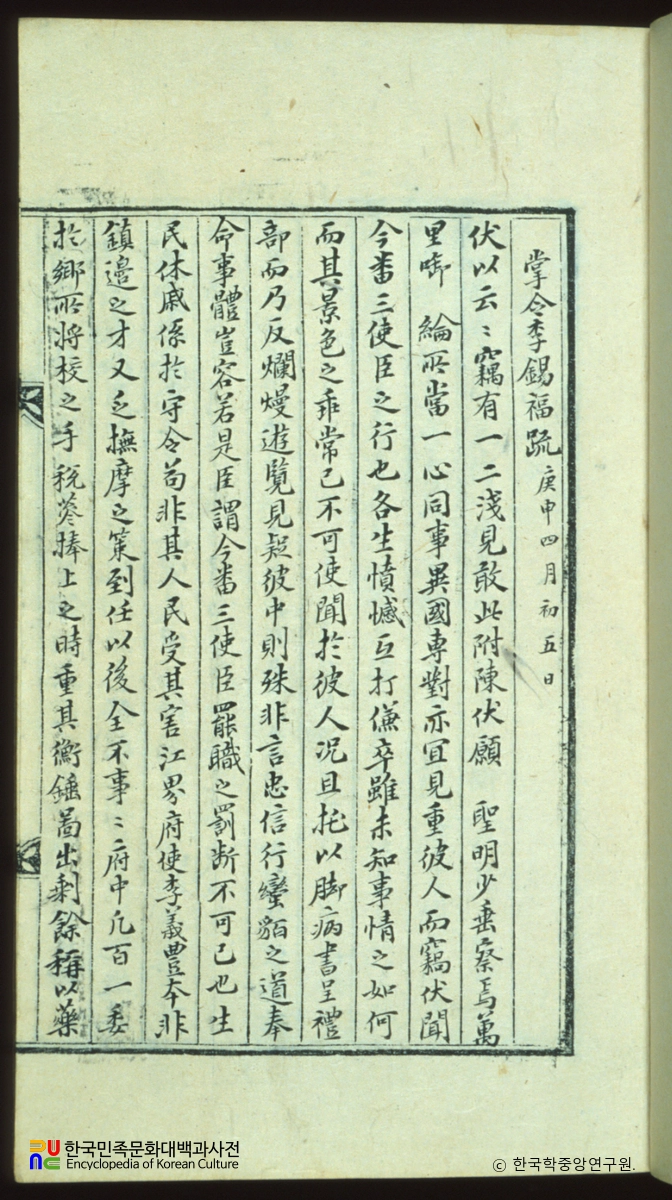 掌令李錫福疏 庚申四月初五日
伏以云〻竊有一二淺見敢此附陳伏願 聖明少垂察焉萬
里啣 綸所當一心同事異國專對亦宜見重彼人而竊伏聞
今番三使臣之行也各生憤憾互打傔卒雖未知事情之如何
而其景色之乖常已不可使聞於彼人况且托以脚病書呈禮
部而乃反爛熳遊覽見疑彼中則殊非言忠信行蠻貊之道奉
命事體豈容若是臣謂今番三使臣罷職之罰断不可已也生
民休戚係於守令苟非其人民受其害江界府使李義豊本非
鎮邊之才又乏撫摩之策到任以後全不事〻府中凡百一委
於鄉所將校之手稅蔘捧上之時重其衡錘啚出剩餘稱以藥
한국민족문화대백과사전
Encyclopedia of Korean Culture
ⓒ 한국학중앙연구원.